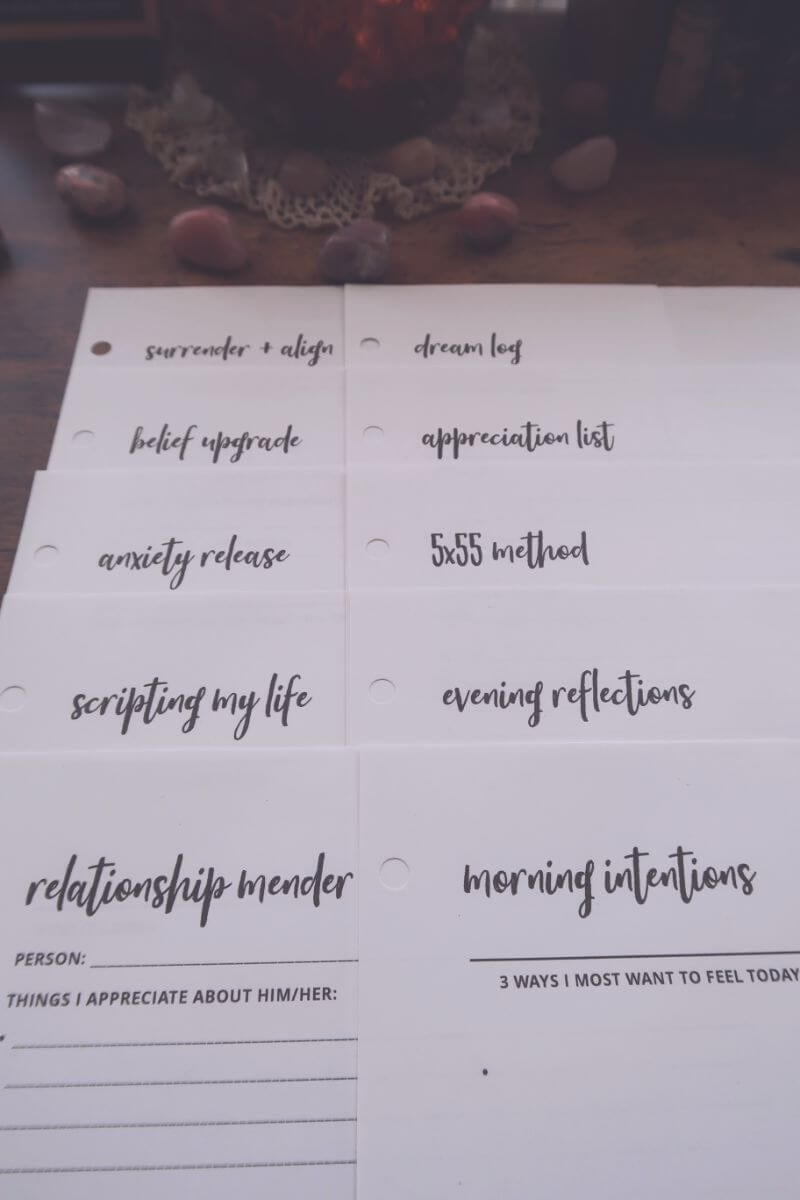 surrender + align
dream log
belief upgrade
appreciation list
anxiety release
5x55 method
scripting my life
evening reflections
relationship mender
PERSON:
THINGS I APPRECIATE ABOUT HIM/HER:
morning intentions
3 WAYS I MOST WANT TO FEEL TODAY